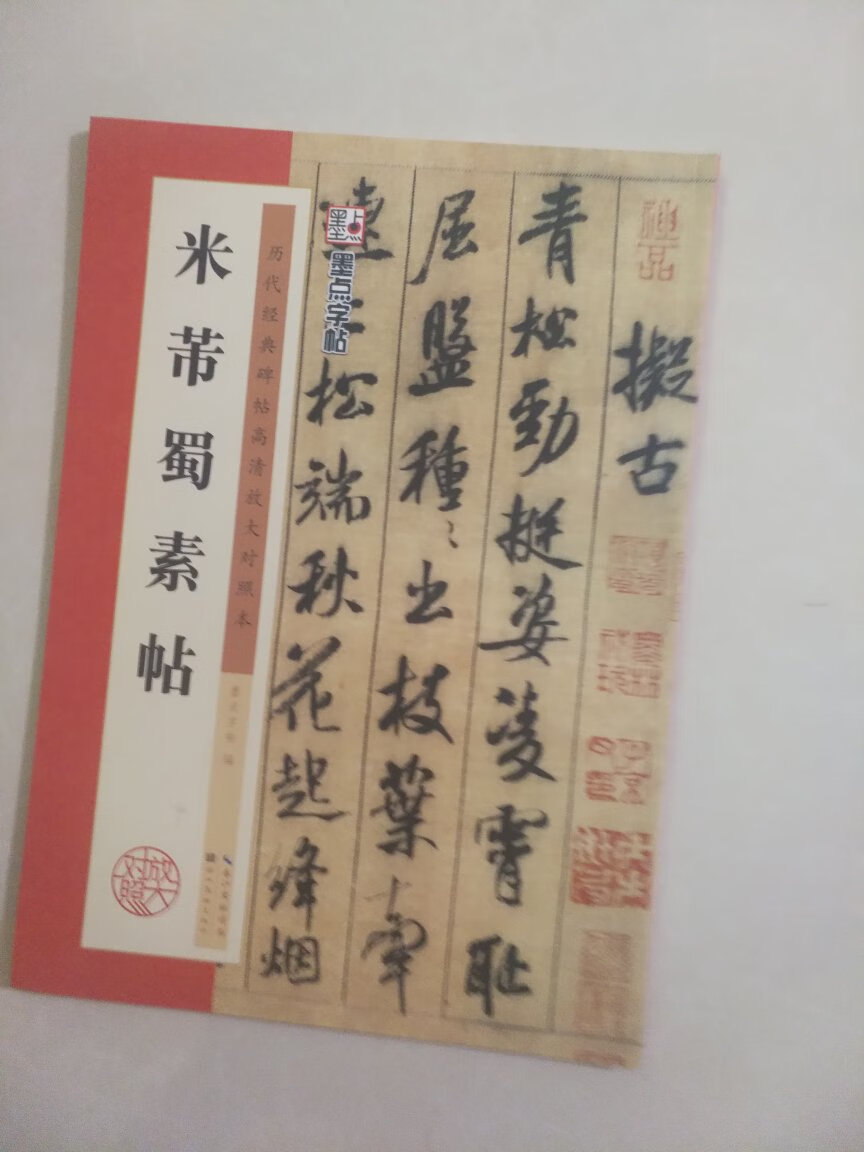 米芾蜀素帖
历代经典碑帖高清放大对照本
墨点字帖 编
放大对照
墨点
墨点字帖
神品
擬古
青松勁挺姿凌霄耻
屈盤種〻出枝葉牽
松端秋花起絳烟